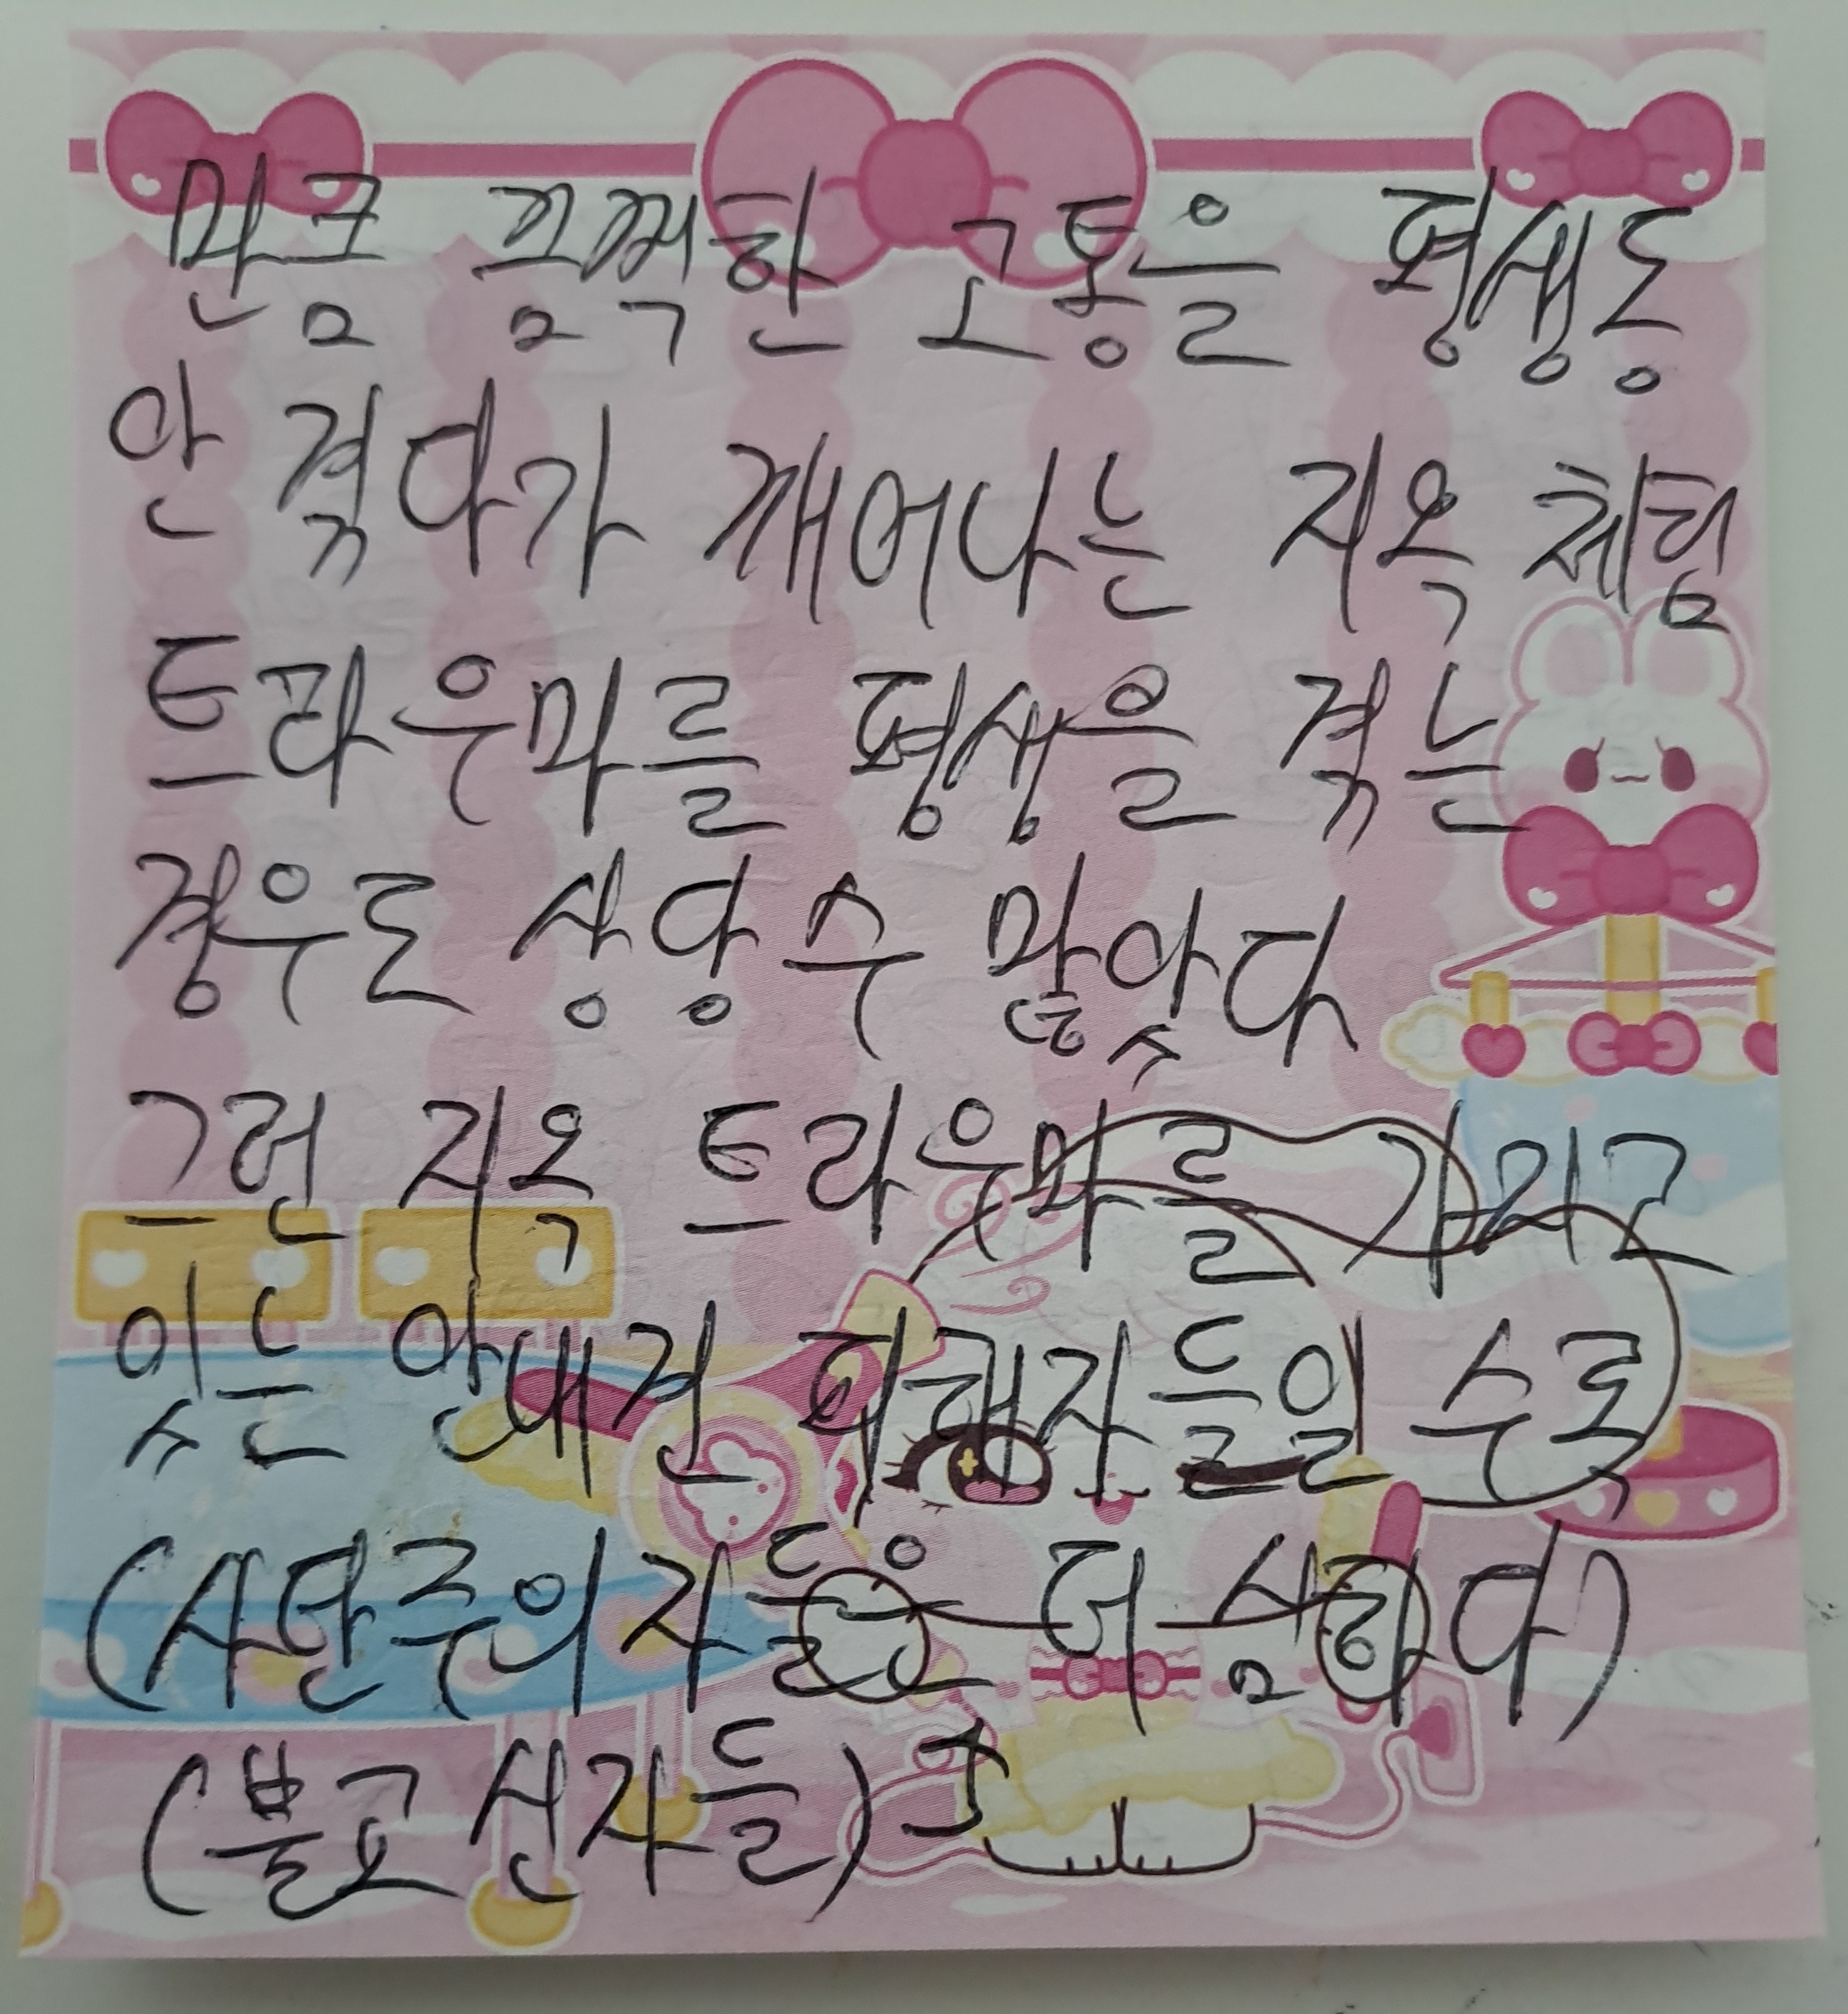 만큼 끔찍한 고통을 평생동
안 겪다가 깨어나는 지옥 체험
트라우마를 평생을 겪는
경우도 상당수 많았다
그런 지옥 트라우마를 가지고
있는 안내견 피해자들일 수록
(A단주의자들은 더 심하다)
(불교 신자들)